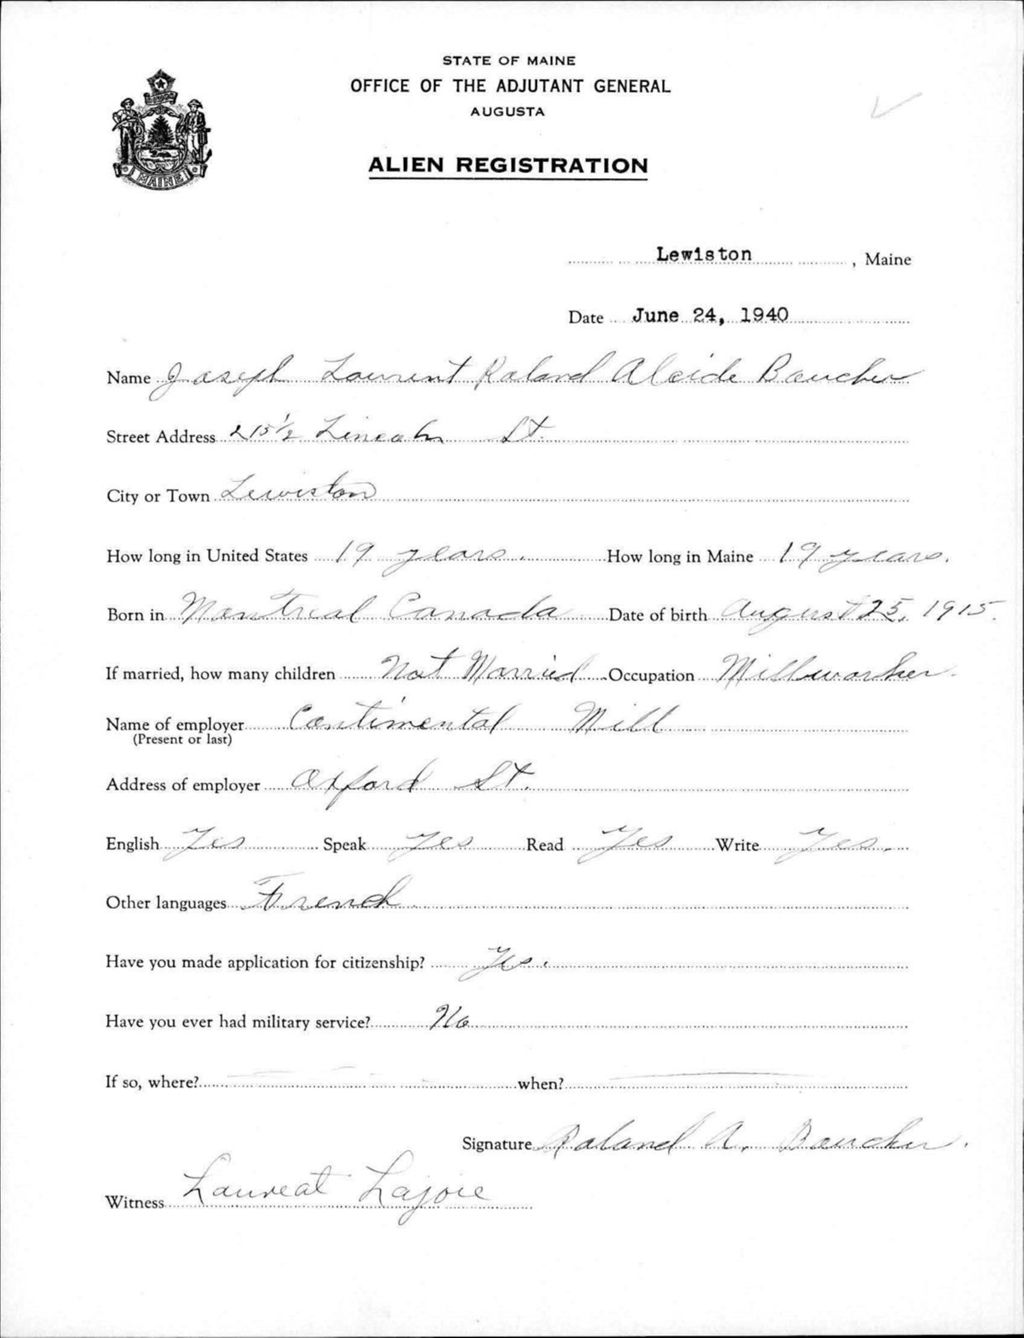 STATE OF MAINE
OFFICE OF THE ADJUTANT GENERAL
AUGUSTA
ALIEN REGISTRATION
MAINE
Lewiston, Maine
Date June 24, 1940
Name Joseph Laurent Roland Alcide Boucher
Street Address 215 1/2 Lincoln St.
City or Town Lewiston
How long in United States 19 years. How long in Maine 19 years.
Born in Montreal Canada Date of birth August 25, 1915.
If married, how many children Not Married Occupation Millworker.
Name of employer Continental Mill
(Present or last)
Address of employer Oxford St.
English Yes Speak Yes Read Yes Write Yes.
Other languages French
Have you made application for citizenship? Yes.
Have you ever had military service? No
If so, where? when?
Signature Roland A. Boucher.
Witness Laureat Lajoie